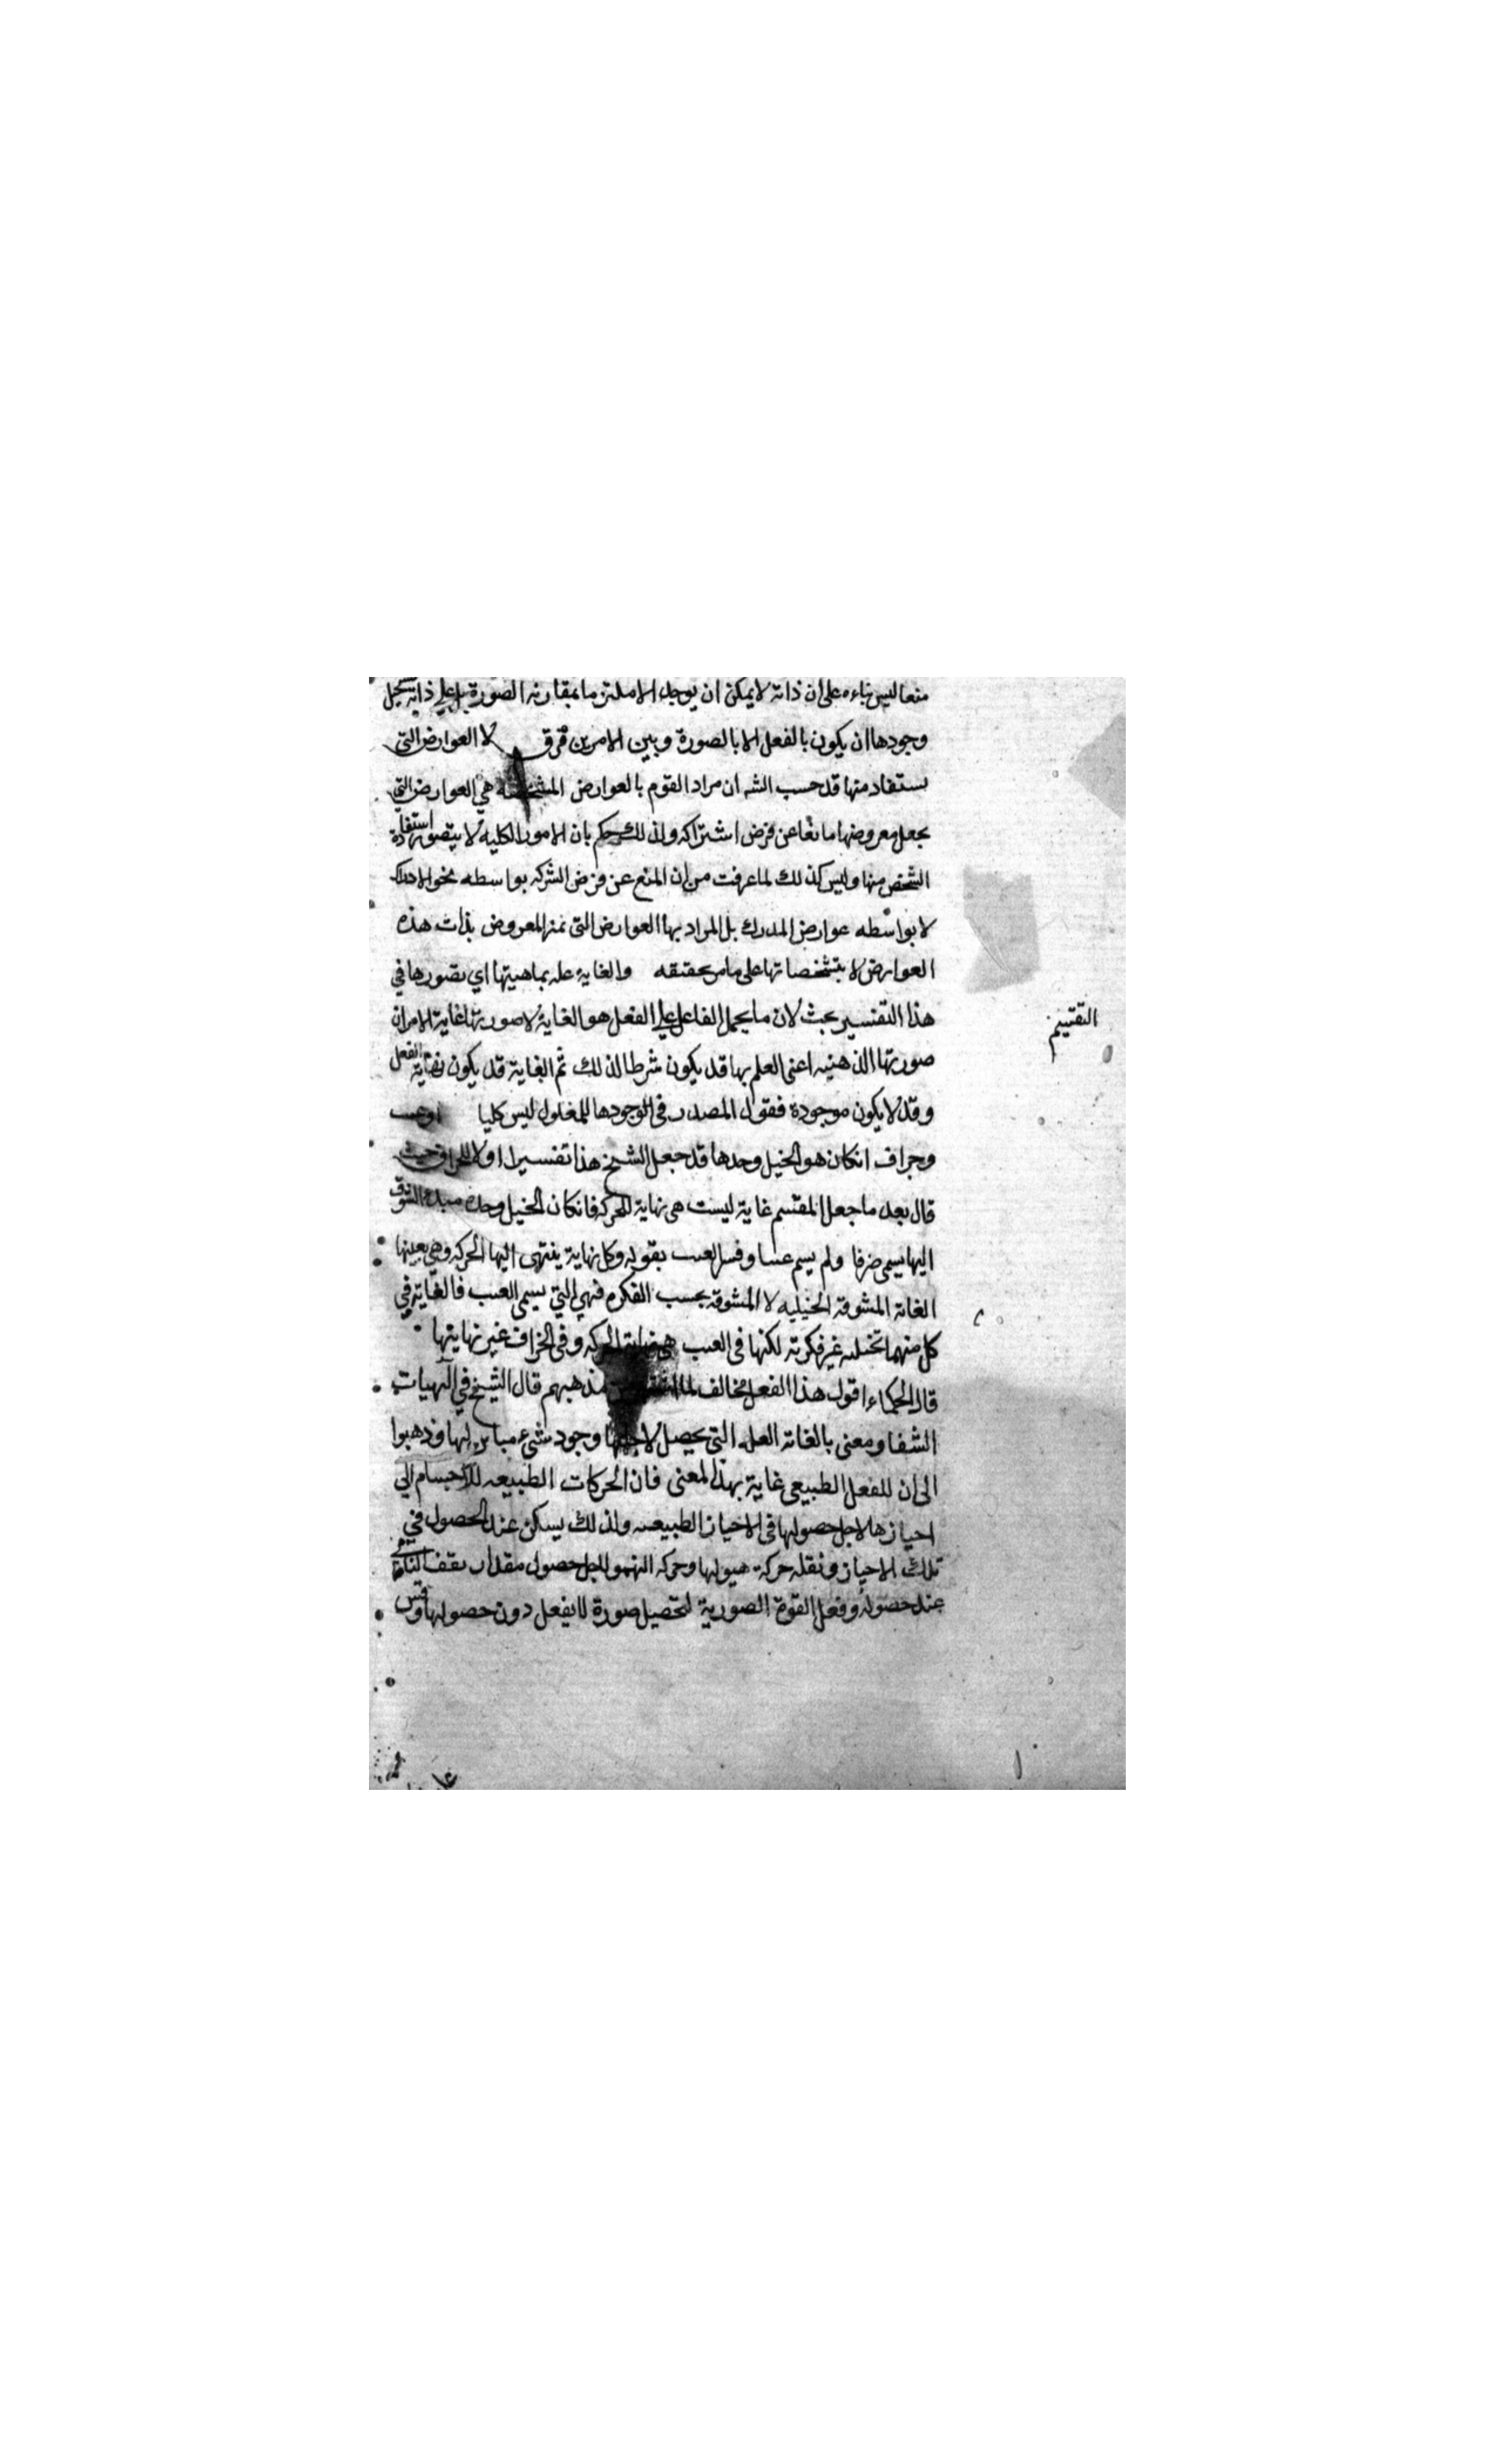 منعا ليس بناءه على ان ذاته لا يمكن ان يوجد الا ملتزما بمقارنه الصورة بل على ذاته يستحيل
وجودها ان يكون بالفعل الا بالصورة وبين الامرين فرق لا العوارض التى
يستفاد منها قد حسب الشه ان مراد القوم بالعوارض المشخصه هي العوارض التي
يجعل معروضها مانعا عن فرض اشتراكه ولذلك حكم بان الامور الكليه لا يتصور استفادة
الشخص منها وليس كذلك لما عرفت من ان المنع عن فرض الشركه بواسطه نحو الادراك
لا بواسطه عوارض المدرك بل المراد بها العوارض التى تميز المعروض بذات هذه
العوارض لا بتشخصاتها على ما مر تحقيقه والغاية عله بماهيتها اي بصورها في
هذا التفسير بحث لان ما يحمل الفاعل على الفعل هو الغاية لا صورتها غاية الامر ان
التقسيم
صورتها الذهنيه اعنى العلم بها قد يكون شرطا لذلك ثم الغاية قد يكون نهاية الفعل
وقد لا يكون موجودة فقول المصدر فى الوجودها للمعلول ليس كليا او عبث
وجزاف ان كان هو التخيل وحدها قد جعل الشيخ هذا تفسيرا اولا للجزاف حيث
قال بعد ما جعل المقسم غاية ليست هى نهاية الحركه فان كان التخيل وحده مبدء الشوق
اليها يسمى جزفا ولم يسم عبثا وفسر العبث بقوله وكل نهاية ينتهى اليها الحركه وهي بعينها
الغاية المشوقة التخيليه لا المشوقة بحسب الفكره فهي التي يسمى العبث فالغاية في
كل منهما تخيليه غير فكرية لكنها فى العبث هى نهاية الحركه وفى الجزاف غير نهايتها
قال الحكماء اقول هذا الفعل مخالف لما مذهبهم قال الشيخ في آلهيات
الشفا ومعنى بالغاية العله التى يحصل لاجلها وجود شىء مباين لها وذهبوا
الى ان للفعل الطبيعى غاية بهذا المعنى فان الحركات الطبيعيه للاجسام الي
احيازها لاجل حصولها فى الاحياز الطبيعيه ولذلك يسكن عند الحصول في
تلك الاحياز ونقله حركة هيولها وحركه النمو لاجل حصول مقدار يقف النامى
عند حصوله وفعل القوة الصورية لتحصيل صورة لا يفعل دون حصولها وقس